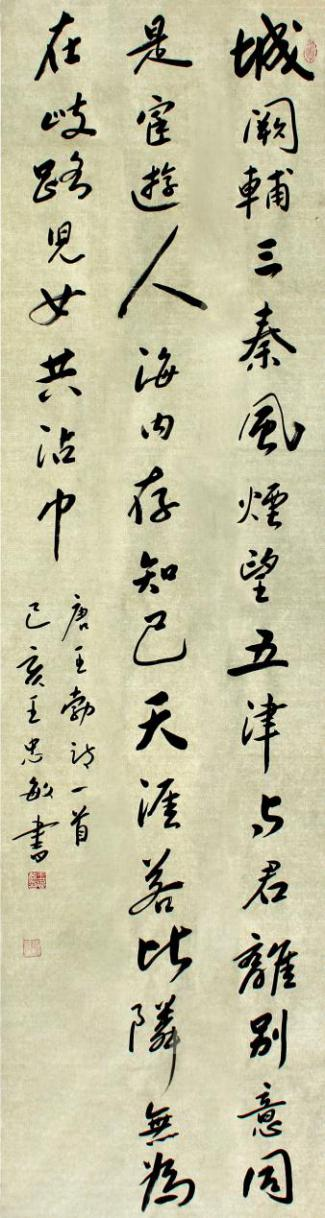 城闕輔三秦風煙望五津与君離別意同
是宦遊人海内存知己天涯若比隣無為
在歧路児女共沾巾
唐王勃诗一首
己亥王忠敏書